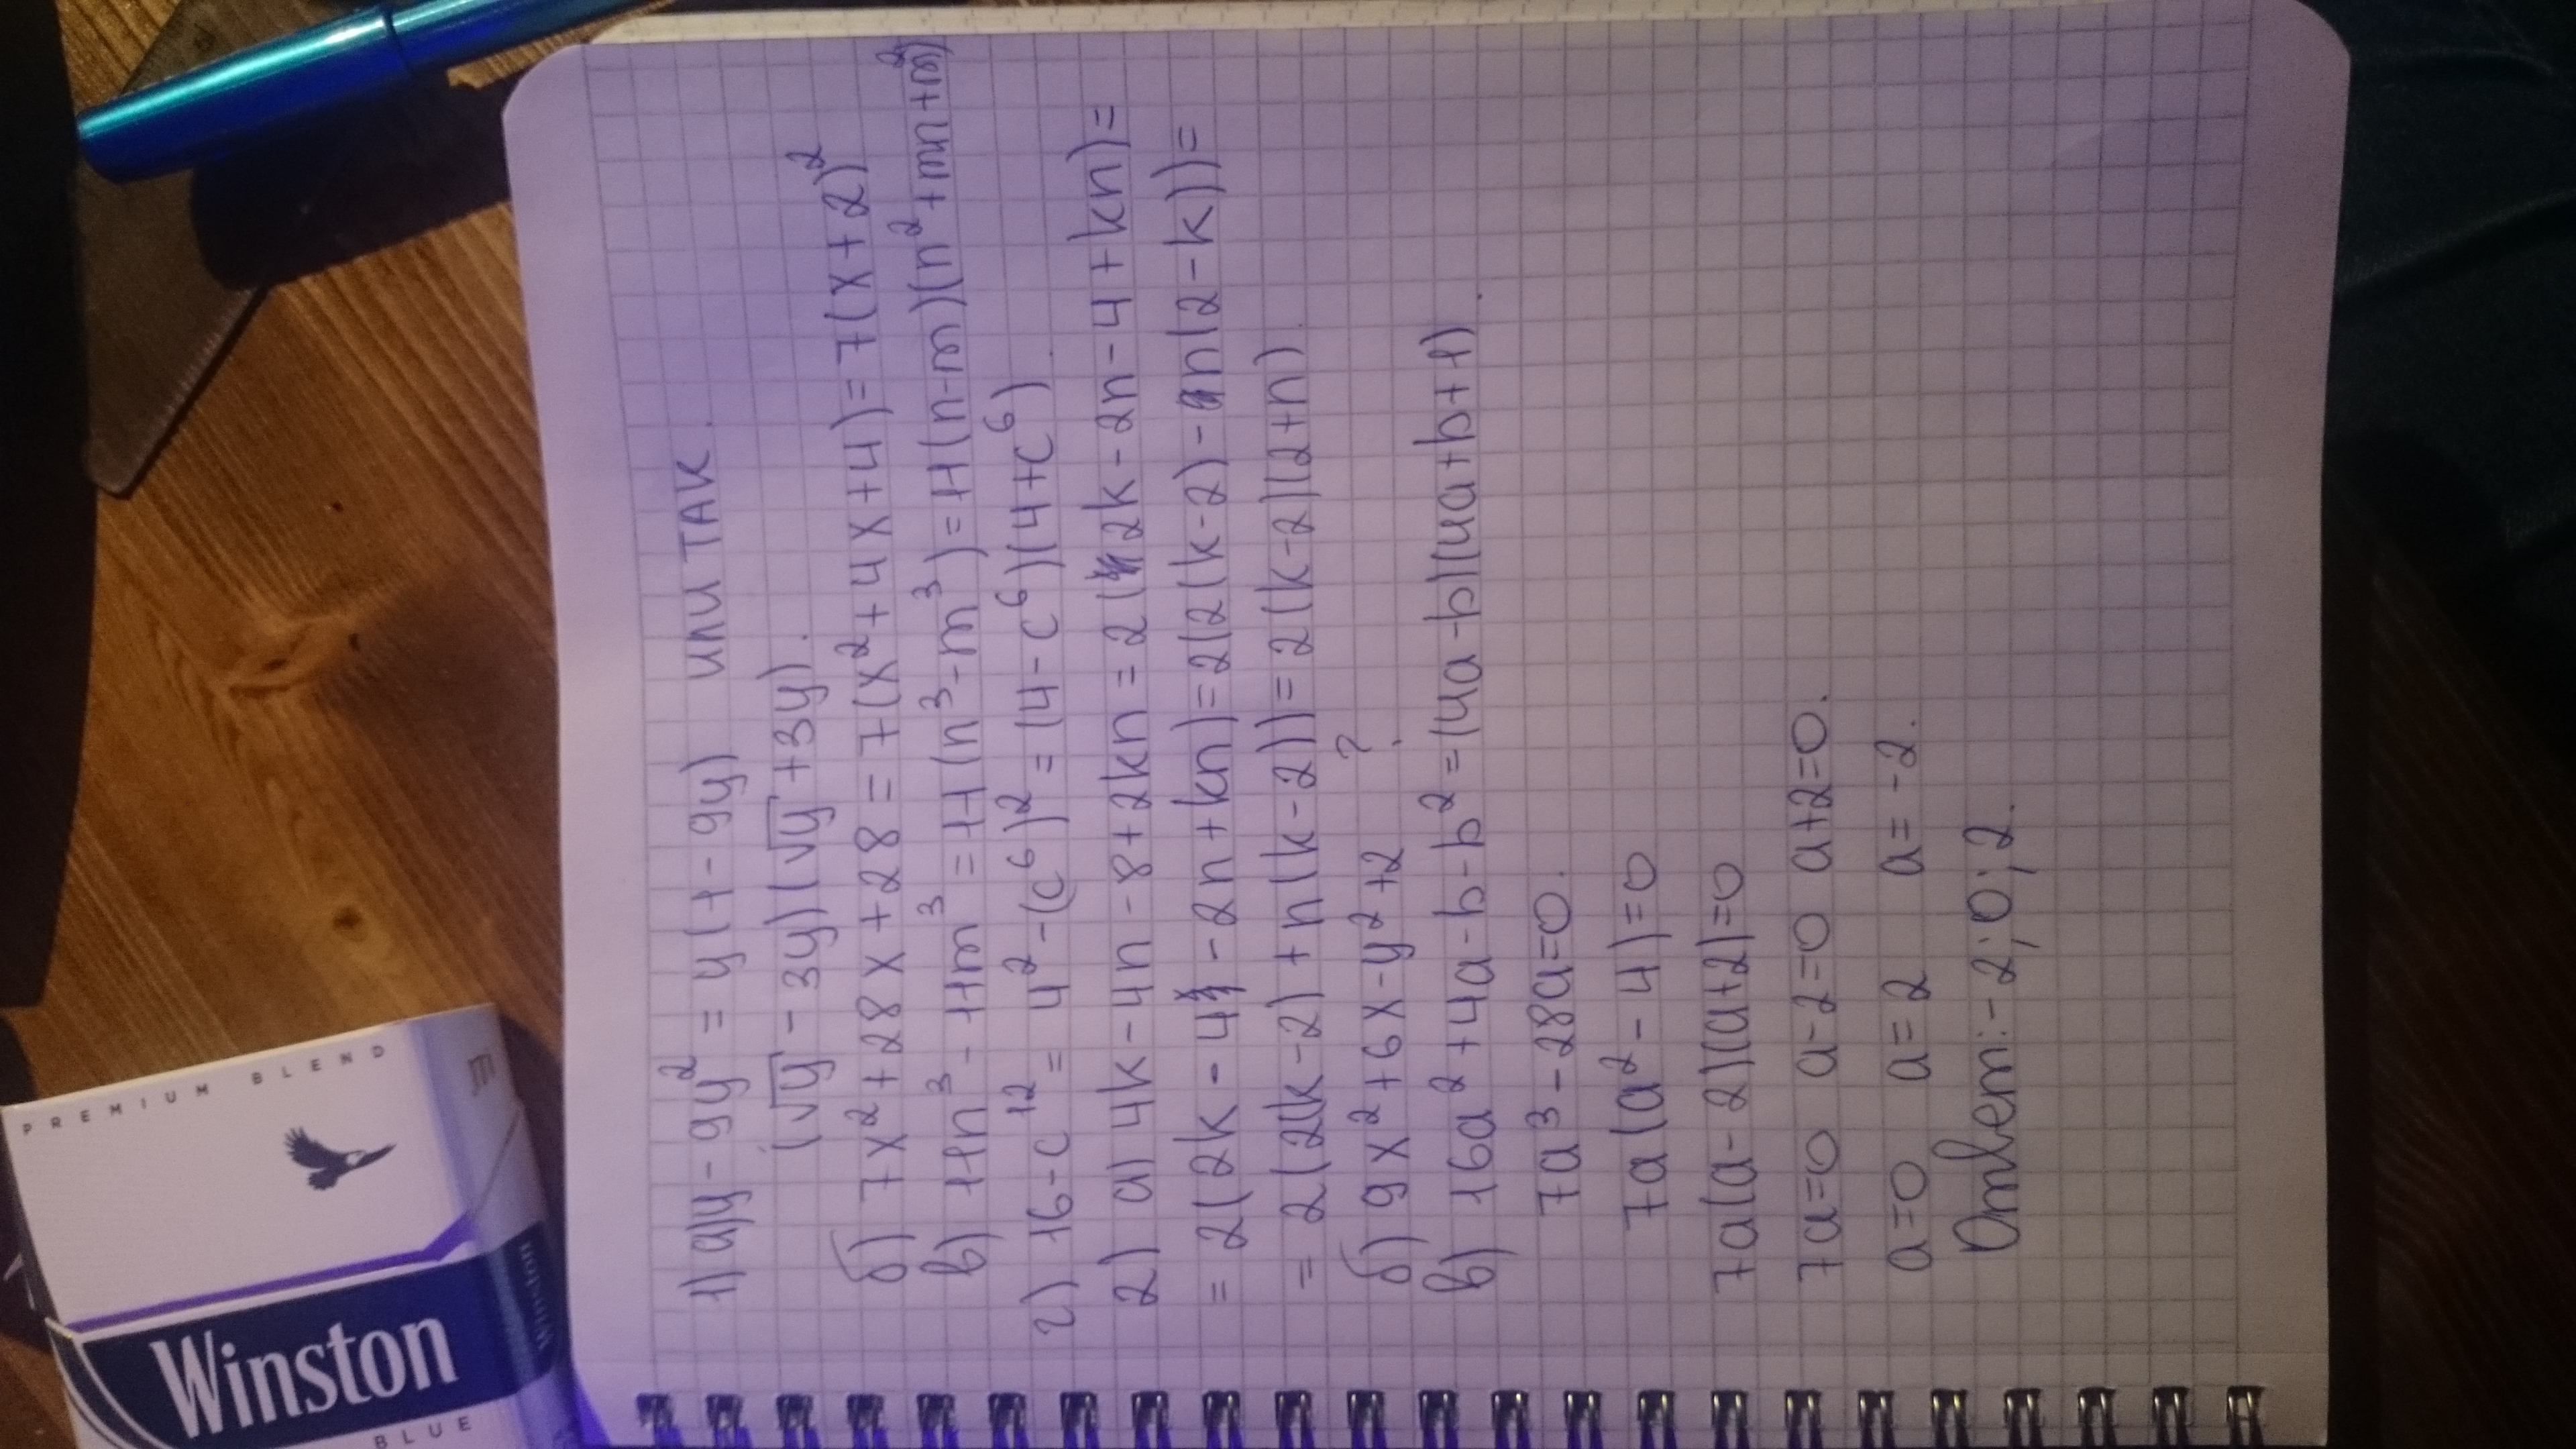 1) а) y - 9y² = y(1 - 9y) или так.
(√y - 3y)(√y + 3y).
б) 7x² + 28x + 28 = 7(x² + 4x + 4) = 7(x + 2)²
в) 11n³ - 11m³ = 11(n³ - m³) = 11(n - m)(n² + mn + m²)
г) 16 - c¹² = 4² - (c⁶)² = (4 - c⁶)(4 + c⁶).
2) а) 4k - 4n - 8 + 2kn = 2(2k - 2n - 4 + kn) =
= 2(2k - 4 - 2n + kn) = 2(2(k - 2) - n(2 - k)) =
= 2(2(k - 2) + n(k - 2)) = 2(k - 2)(2 + n).
б) 9x² + 6x - y² + 2 ?
в) 16a² + 4a - b - b² = (4a - b)(4a + b + 1).
7a³ - 28a = 0.
7a(a² - 4) = 0
7a(a - 2)(a + 2) = 0
7a = 0 a - 2 = 0 a + 2 = 0.
a = 0 a = 2 a = -2.
Ответ: -2; 0; 2.
PREMIUM BLEND
Winston
BLUE
Winston